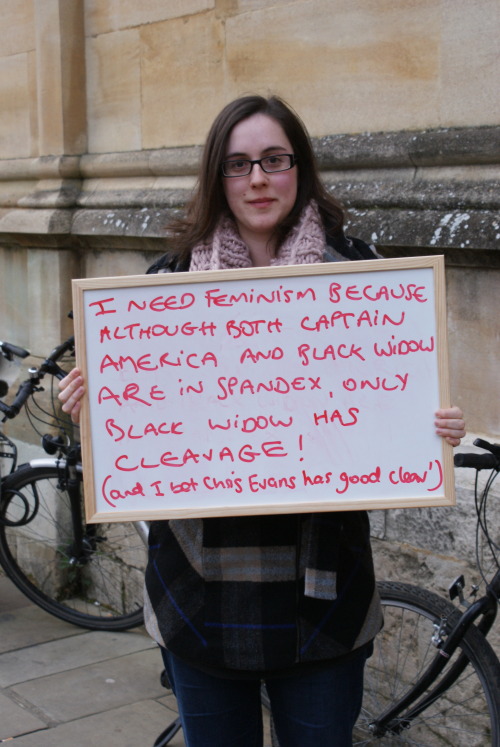 I NEED FEMINISM BECAUSE
ALTHOUGH BOTH CAPTAIN
AMERICA AND BLACK WIDOW
ARE IN SPANDEX, ONLY
BLACK WIDOW HAS
CLEAVAGE!
(and I bet Chris Evans has good cleav')